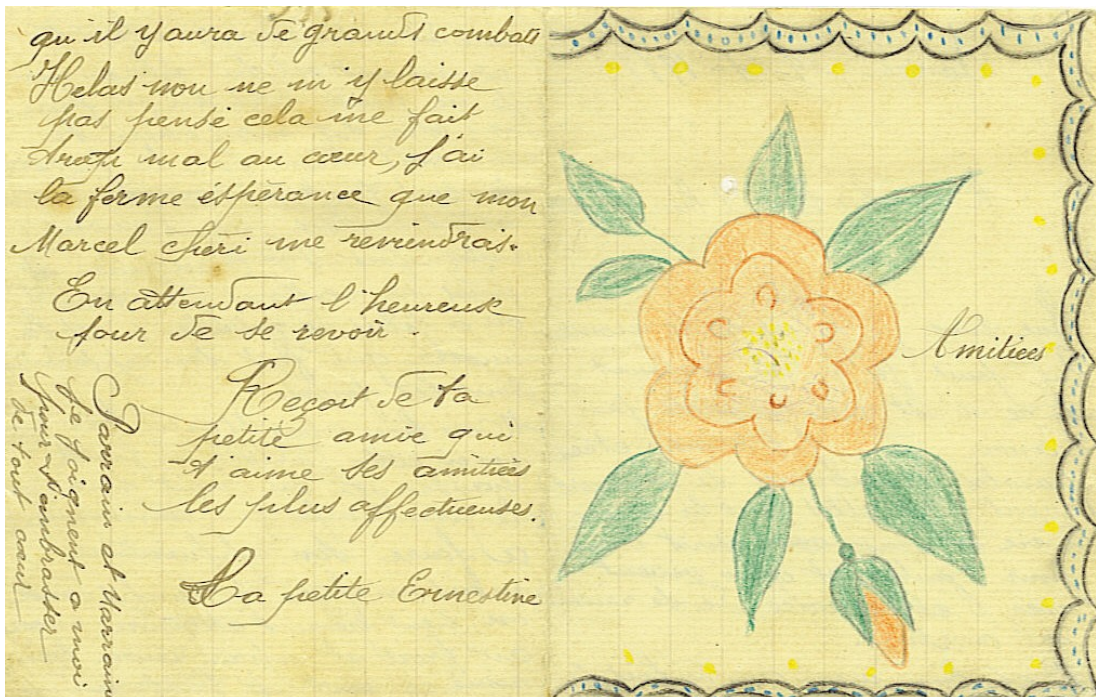 qu'il y aura de grands combats
Helas non ne m'y laisse
pas pensé cela me fait
trop mal au cœur, j'ai
la ferme éspèrance que mon
Marcel chéri me reviendrais.
En attendant l'heureux
jour de se revoir.
Reçoit de ta
petite amie qui
t'aime ses amitiées
les plus affectueuses.
La petite Ernestine
Parrain et Marraine
se joignent a moi
pour t'embrasser
de tout cœur
Amitiées